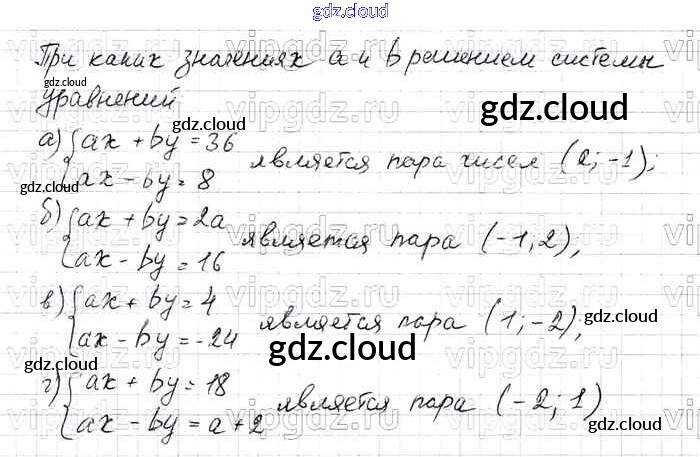 gdz.cloud
При каких значениях a и b решением системы
уравнений
а) { ax + by = 36
ax - by = 8 является пара чисел (2; -1);
б) { ax + by = 2a
ax - by = 16 является пара (-1; 2),
в) { ax + by = 4
ax - by = -24 является пара (1; -2),
г) { ax + by = 18
ax - by = a + 2 является пара (-2; 1)
gdz.cloud
gdz.cloud
gdz.cloud
gdz.cloud
gdz.cloud
gdz.cloud
gdz.cloud
gdz.cloud
gdz.cloud
vipgdz.ru